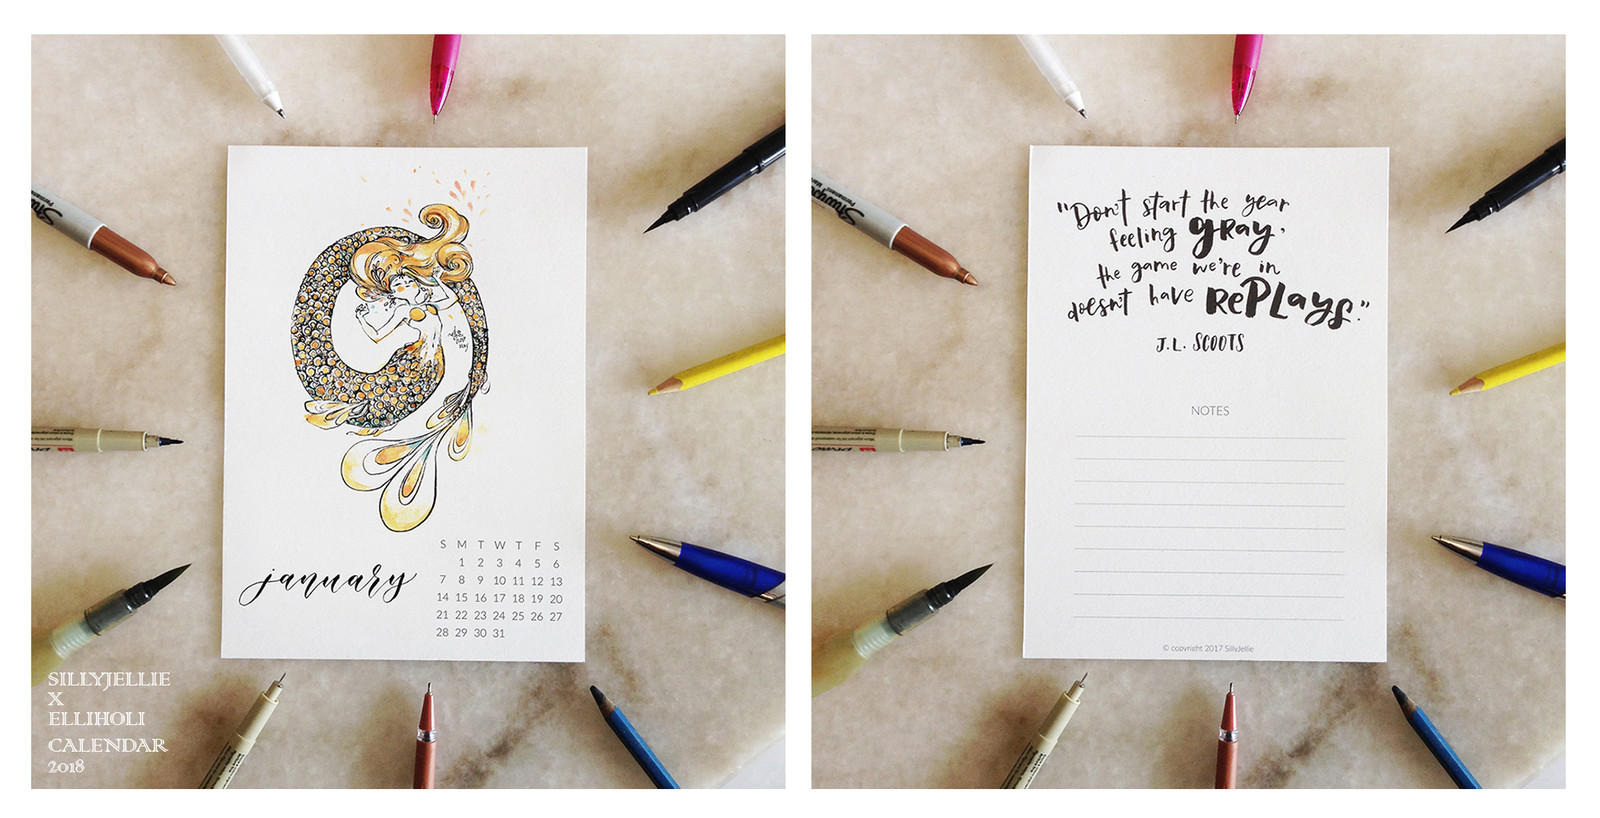 Sharpie
january
S M T W T F S
1 2 3 4 5 6
7 8 9 10 11 12 13
14 15 16 17 18 19 20
21 22 23 24 25 26 27
28 29 30 31
SILLYJELLIE
X
ELLIHOLI
CALENDAR
2018
"Don't start the year
feeling gray,
the game we're in
doesn't have RePLays."
J.L. SCOOTS
NOTES
© copyright 2017 SillyJellie